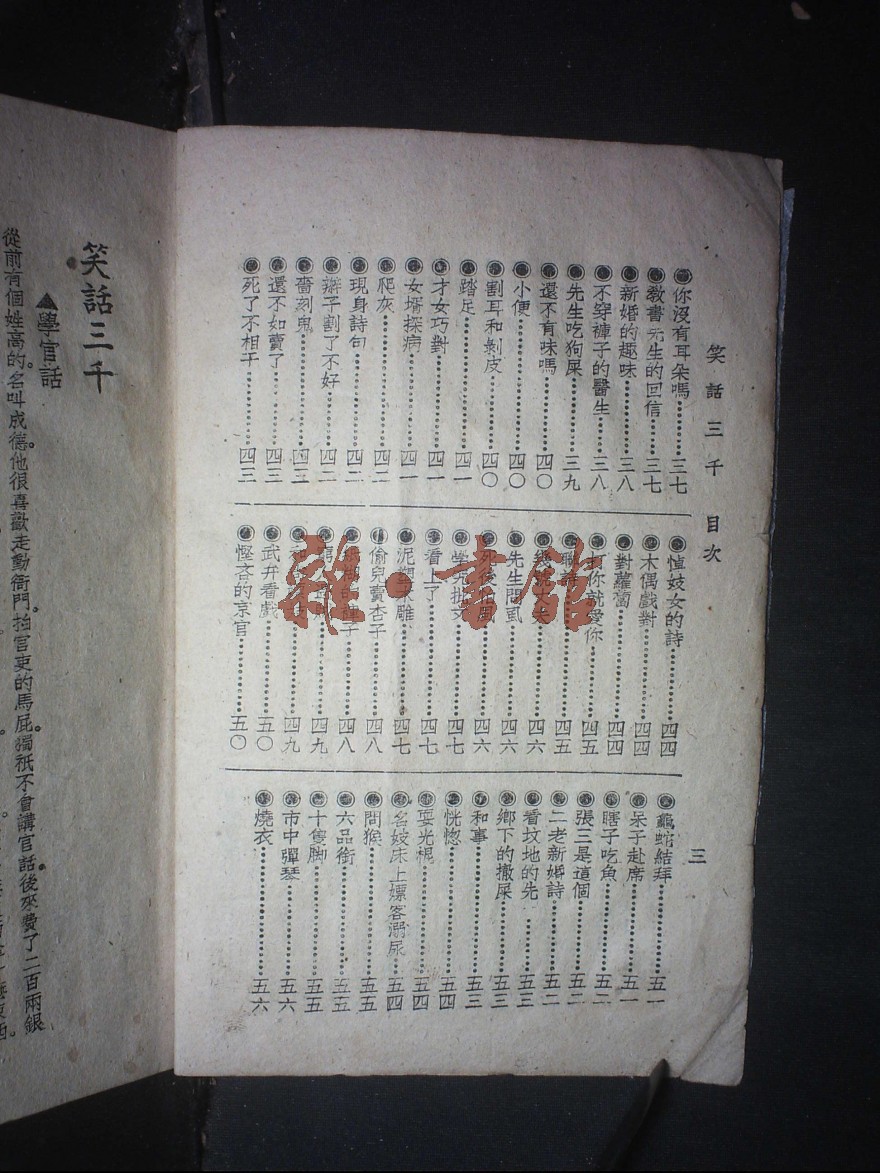 笑話三千 目次
三
你沒有耳朵嗎 三七
教書先生的回信 三七
新婚的趣味 三八
不穿褲子的醫生 三八
先生吃狗屎 三九
還不有味嗎 四〇
小便 四〇
割耳和剝皮 四〇
踏足 四一
才女巧對 四一
女壻探病 四一
爬灰 四二
現身詩句 四二
辮子割了不好 四二
嗇刻鬼 四三
還不如賣了 四三
死了不相干 四三
悼妓女的詩 四四
木偶戲對 四四
對蘿蔔 四四
打你就愛你 四五
四五
四六
先生問虱 四六
四六
四七
看上了 四七
泥塑木雕 四七
偷兒賣杏子 四八
四八
四九
四九
武弁看戲 五〇
慳吝的京官 五〇
龜蛇結拜 五一
呆子赴席 五一
瞎子吃魚 五二
張三是這個 五二
二老新婚詩 五二
看墳地的先 五三
鄉下的撤屎 五三
和事 五三
恍惚 五四
耍光棍 五四
名妓床上嫖客溺尿 五四
問猴 五五
六品銜 五五
十隻脚 五五
市中彈琴 五六
燒衣 五六
笑話三千
▲學官話
從前有個姓高的。名叫成德。他很喜歡走動衙門。拍官吏的馬屁。獨祇不會講官話。後來費了二百兩銀
雜·書館